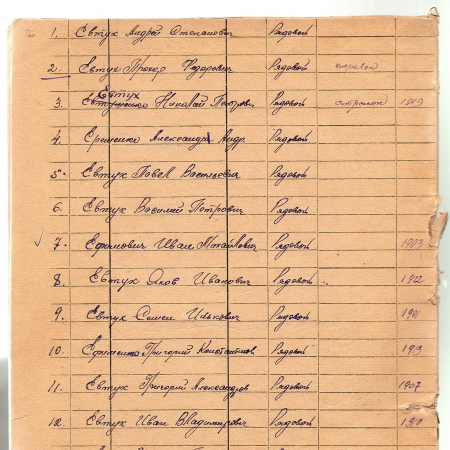 1. Евтух Андрей Степанович Рядовой
2. Евтух Прохор Федорович Рядовой стрелок
Евтух
3. Евтушенко Николай Петрович Рядовой стрелок 1919
4. Ерошенко Александр Андр. Рядовой
5. Евтух Павел Васильевич Рядовой
6. Евтух Василий Петрович Рядовой
7. Ефимович Иван Михайлович Рядовой 1903
8. Евтух Яков Иванович Рядовой 1912
9. Евтух Семен Илькович Рядовой
10. Ефименко Григорий Константинов. Рядовой 1913
11. Евтух Григорий Александров Рядовой 1907
12. Евтух Иван Владимирович Рядовой